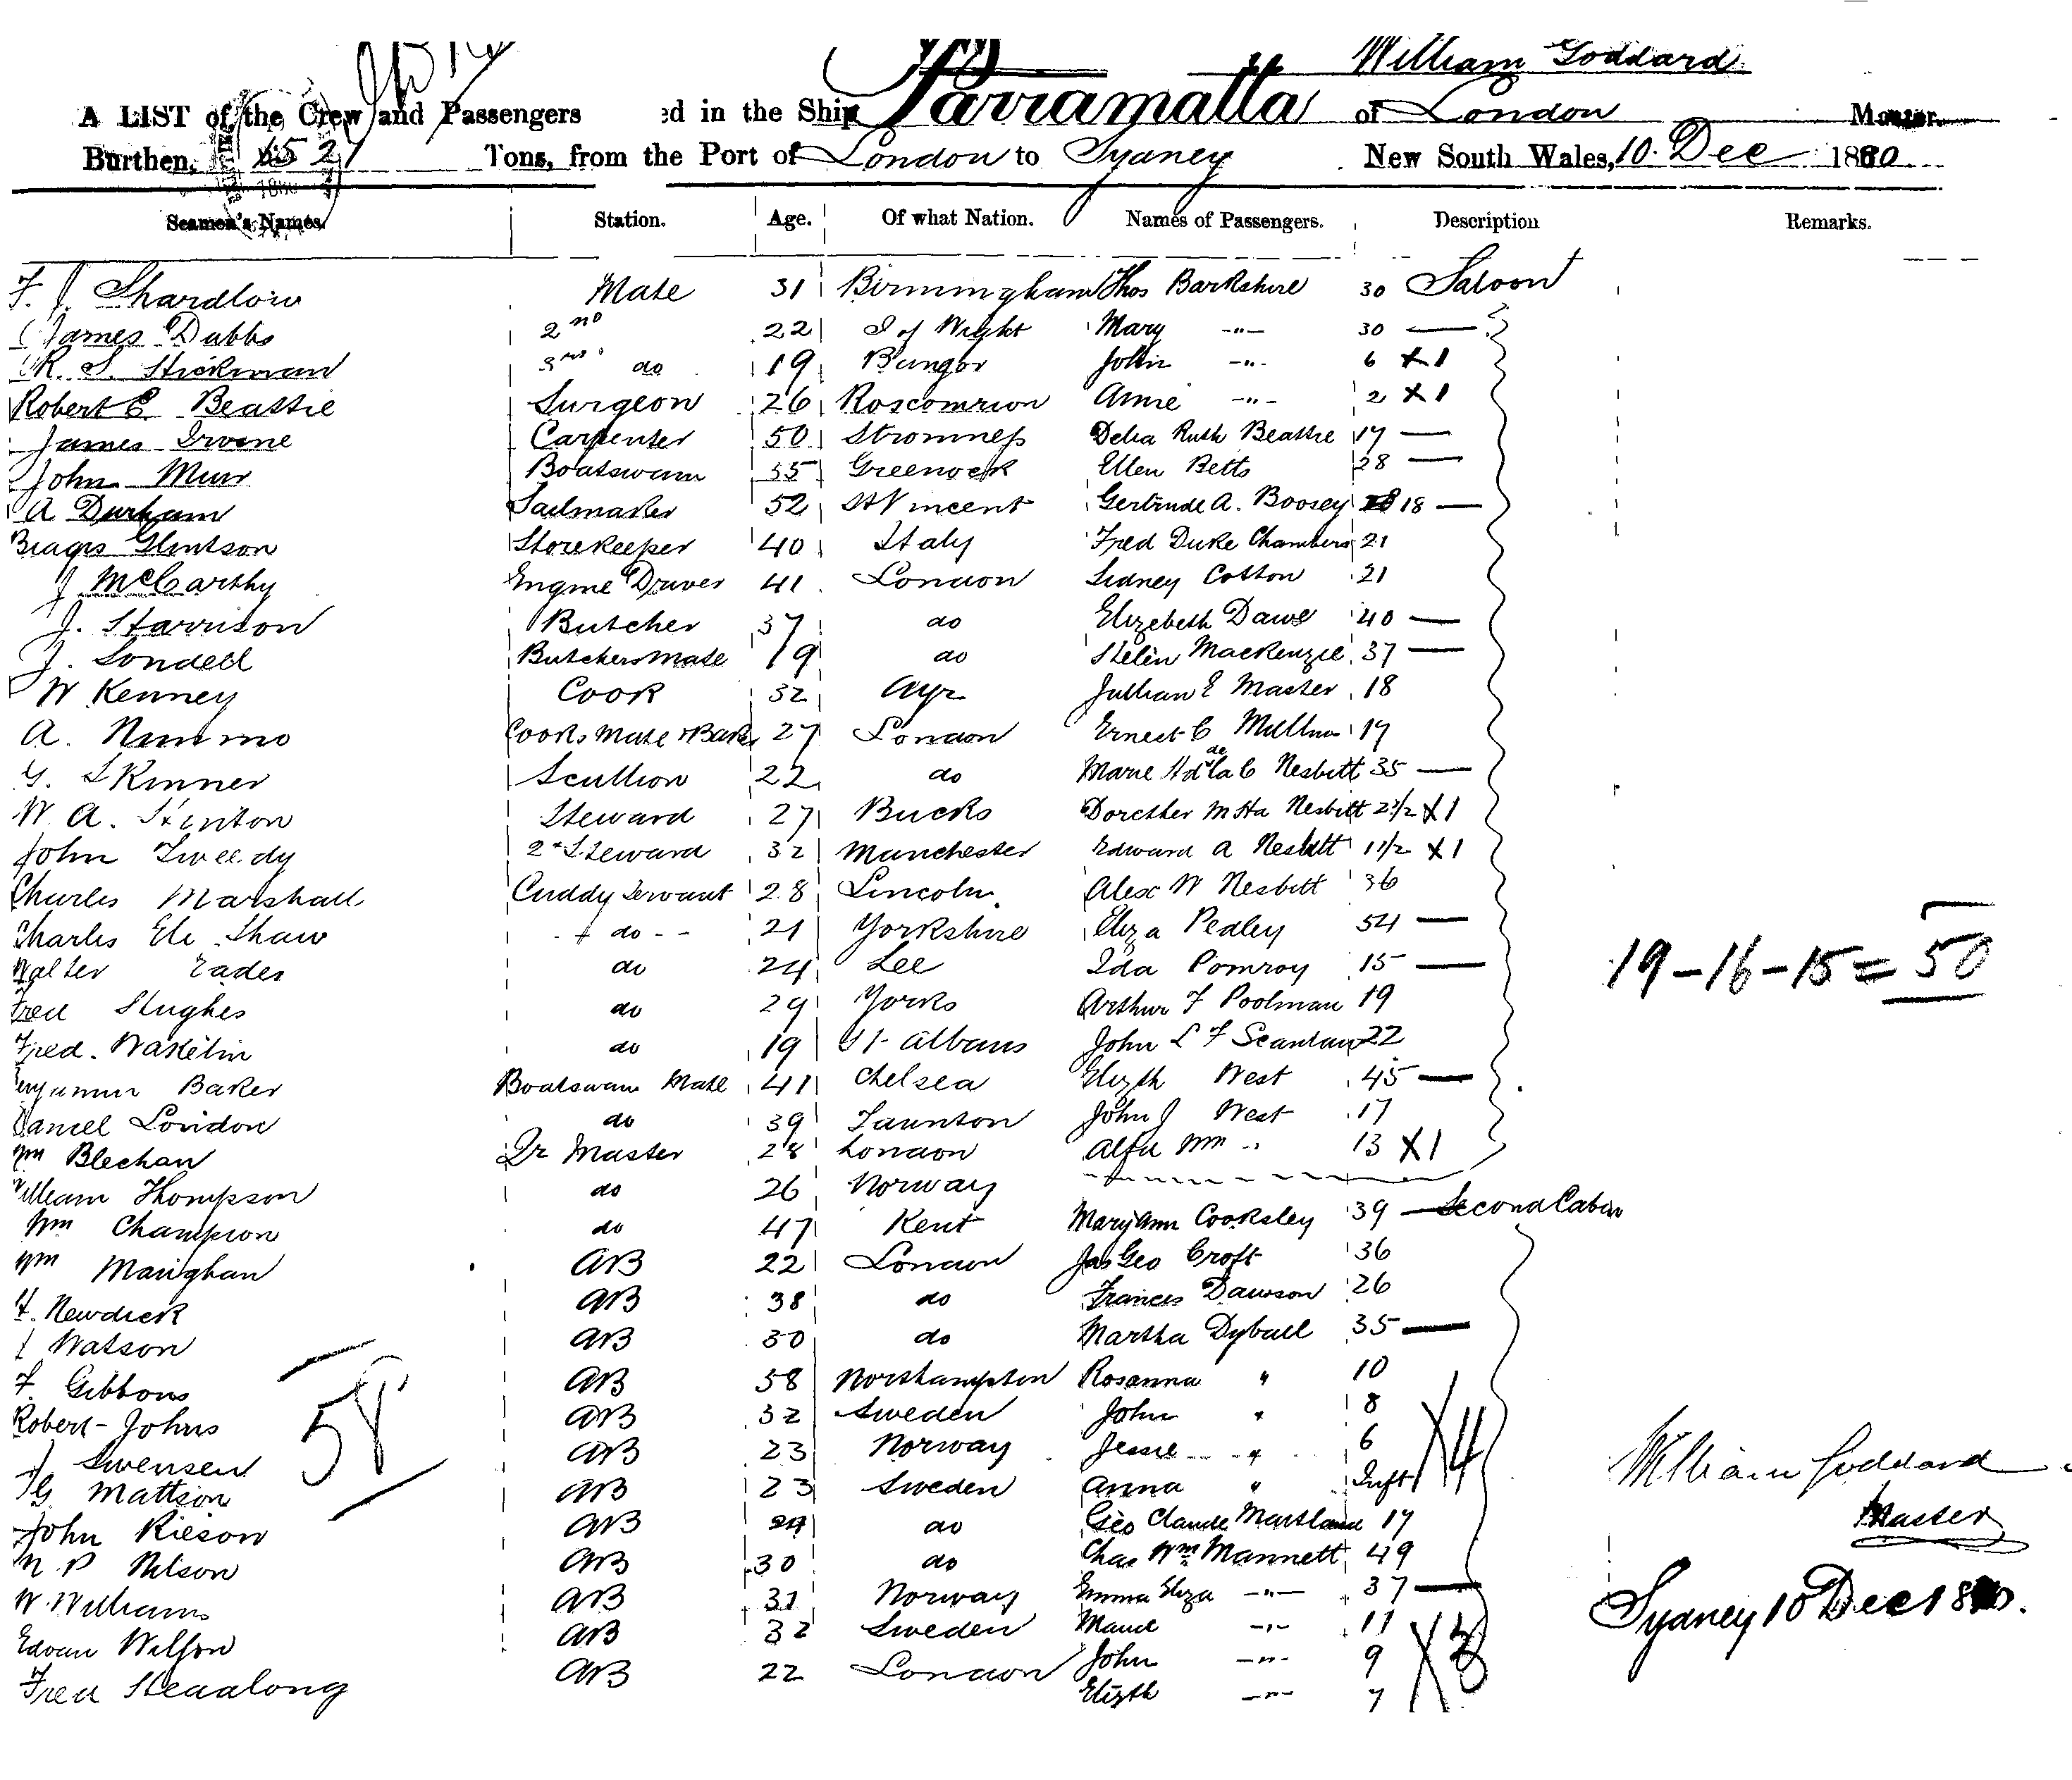 William Goddard
A LIST of the Crew and Passengers ed in the Ship Parramatta of London Master.
Burthen, 1521 Tons, from the Port of London to Sydney New South Wales, 10 Dec 1880
Seamen's Names. Station. Age. Of what Nation. Names of Passengers. Description Remarks.
F. J. Shardlow Mate 31 Birmingham Thos Barkshire 30 Saloon
James Dabbs 2nd 22 I of Wight Mary -"- 30 —
R. S. Hickman 3rd do 19 Bangor John -"- 6 X1
Robert E Beattie Surgeon 26 Roscommon Annie -"- 2 X1
James Irvine Carpenter 50 Stromness Delia Ruth Beattie 19 —
John Muir Boatswain 35 Greenock Ellen Betts 28 —
A Durham Sailmaker 52 St Vincent Gertrude A. Boosey 18 —
Storekeeper 40 Italy Fred Duke Chambers 21
J McCarthy Engine Driver 41 London Sidney Cotton 21
J. Harrison Butcher 37 do Elizebeth Dawe 40 —
J. Londell Butchers Mate 19 do Helen Mackenzie 37 —
W Kenney Cook 32 Ayr Jullian E Master 18
A. Nimmo Cooks Mate & Baker 27 London Ernest C 19
G. Skinner Scullion 22 do Marie de la C Nesbitt 35 —
W. A. Hinton Steward 27 Bucks Dorether M Nesbitt 2 1/2 X1
John Tweedy 2nd Steward 32 Manchester Edward A Nesbitt 1 1/2 X1
Charles Marshall Cuddy Servant 28 Lincoln Alex W Nesbitt 36
Charles Eli Shaw do 21 Yorkshire Eliza Pedley 54 —
Walter Eades do 24 Lee Ida Pomroy 15 —
19-16-15=50
Fred Hughes do 29 Yorks Arthur F Poolman 19
Fred. Wakelin do 19 St Albans John L F Scanlan 22
Benjamin Baker Boatswain Mate 41 Chelsea Elizth West 45 —
Daniel London do 39 Taunton John J West 17
Wm Blechan Qr Master 28 London Alfd Wm " 13 X1
William Thompson do 26 Norway
Wm Champion do 47 Kent Mary Ann Cooksley 39 — Second Cabin
Wm Maughan AB 22 London Jas Geo Croft 36
H. Newdick AB 38 do Frances Dawson 26
Watson AB 30 do Martha Dyball 35 —
F. Gibbons AB 58 Northampton Rosanna " 10
Robert Johns AB 32 Sweden John " 8
58
J Swensen AB 23 Norway Jessie " 6 X4
G Mattson AB 23 Sweden Anna " Inft
William Goddard
John Rieson AB 29 do Geo Claude Maitland 19
Master
N. P Nilson AB 30 do Chas Wm Mannett 49
W. Williams AB 31 Norway Emma Eliza -"- 37 —
Sydney 10 Dec 1880.
Edvan Wilson AB 32 Sweden Maud -"- 11
Fred Headlong AB 22 London John -"- 9 X3
Elizth -"- 7